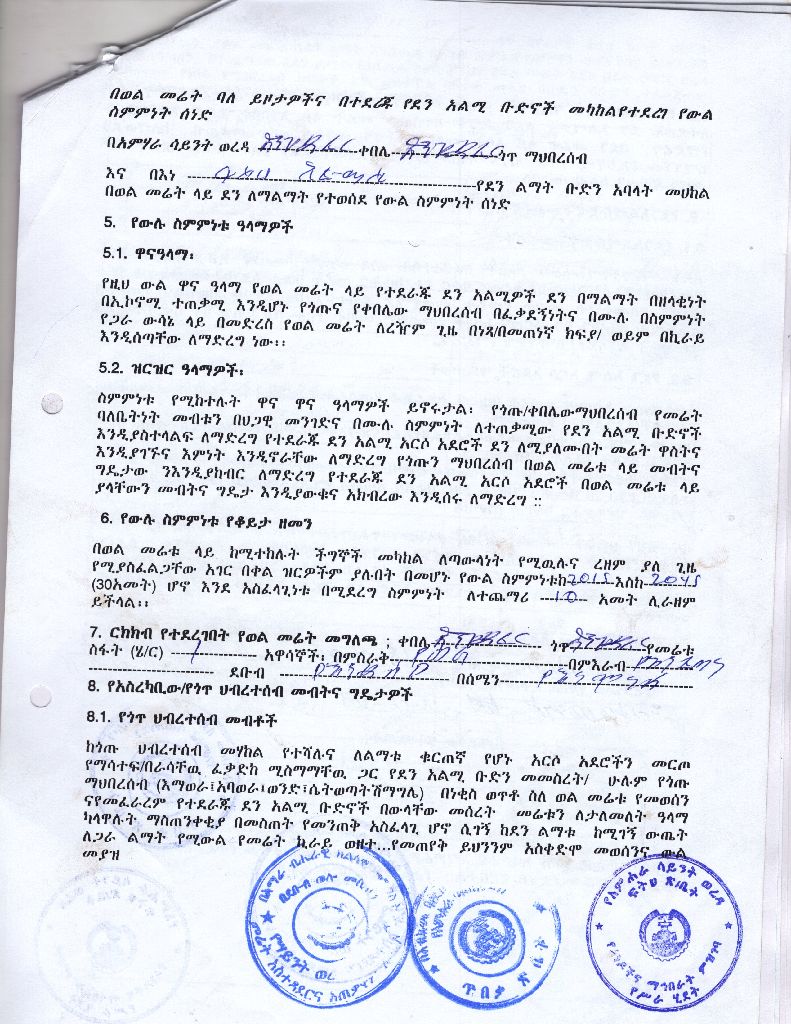 በወል መሬት ባለ ይዞታዎችና በተደራጁ የደን አልሚ ቡድኖች መካከልየተደረገ የውል
ስምምነት ሰነድ
በአምሃራ ሳይንት ወረዳ ቀበሌ ጎጥ ማህበረሰብ
እና በእነ የደን ልማት ቡድን አባላት መሀከል
በወል መሬት ላይ ደን ለማልማት የተወሰደ የውል ስምምነት ሰነድ
5. የውሉ ስምምነቱ ዓላማዎች
5.1. ዋናዓላማ፡
የዚህ ውል ዋና ዓላማ የወል መሬት ላይ የተደራጁ ደን አልሚዎች ደን በማልማት በዘላቂነት
በኢኮኖሚ ተጠቃሚ እንዲሆኑ የጎጡና የቀበሌው ማህበረሰብ በፈቃደኝነትና በሙሉ በስምምነት
የጋራ ውሳኔ ላይ በመድረስ የወል መሬት ለረዥም ጊዜ በነጻ/በመጠነኛ ክፍያ/ ወይም በኪራይ
እንዲሰጣቸው ለማድረግ ነው፡፡
5.2. ዝርዝር ዓላማዎች፡
ስምምነቱ የሚከተሉት ዋና ዋና ዓላማዎች ይኖሩታል፡ የጎጡ/ቀበሌውማህበረሰብ የመሬት
ባለቤትነት መብቱን በህጋዊ መንገድና በሙሉ ስምምነት ለተጠቃሚው የደን አልሚ ቡድኖች
እንዲያስተላልፍ ለማድረግ የተደራጁ ደን አልሚ አርሶ አደሮች ደን ለሚያለሙበት መሬት ዋስትና
እንዲያገኙና እምነት እንዲኖራቸው ለማድረግ የጎጡን ማህበረሰብ በወል መሬቱ ላይ መብትና
ግዴታው ንእንዲያከብር ለማድረግ የተደራጁ ደን አልሚ አርሶ አደሮች በወል መሬቱ ላይ
ያላቸውን መብትና ግዴታ እንዲያውቁና አክብረው እንዲሰሩ ለማድረግ ፡፡
6. የውሉ ስምምነቱ የቆይታ ዘመን
በወል መሬቱ ላይ ከሚተከሉት ችግኞች መካከል ለጣውላነት የሚዉሉና ረዘም ያለ ጊዜ
የሚያስፈልጋቸው አገር በቀል ዝርዎችም ያሉበት በመሆኑ የውል ስምምነቱከ2015እስከ2045
(30አመት) ሆኖ እንደ አስፈላጊነቱ በሚደረግ ስምምነት ለተጨማሪ 10 አመት ሊራዘም
ይችላል፡፡
7. ርክክብ የተደረገበት የወል መሬት መግለጫ ; ቀበሌ ጎጥ የመሬቱ
ስፋት (ሄ/ር) 1 አዋሳኞች፡ በምስራቅ በምእራብ
ደቡብ በሰሜን
8. የአስረካቢው/የጎጥ ህብረተሰብ መብትና ግዴታዎች
8.1. የጎጥ ህብረተሰብ መብቶች
ከጎጡ ህብረተሰብ መሃከል የተሻሉና ለልማቱ ቁርጠኛ የሆኑ አርሶ አደሮችን መርጦ
የማሳተፍ/በራሳቸዉ ፈቃድከ ሚስማማቸዉ ጋር የደን አልሚ ቡድን መመስረት/ ሁሉም የጎጡ
ማህበረሰብ (እማወራ፣አባወራ፣ወንድ፣ሴትወጣትሽማግሌ) በነቂስ ወጥቶ ስለ ወል መሬቱ የመወሰን
ናየመፈራረም የተደራጁ ደን አልሚ ቡድኖች በውላቸው መሰረት መሬቱን ለታለመለት ዓላማ
ካላዋሉት ማስጠንቀቂያ በመስጠት የመንጠቅ አስፈላጊ ሆኖ ሲገኝ ከደን ልማቱ ከሚገኝ ውጤት
ለጋራ ልማት የሚውል የመሬት ኪራይ ወዘተ...የመጠየቅ ይህንንም አስቀድሞ መወሰንና ውል
መያዝ
የአምሐራ ሳይንት ወረዳ
ፍትህ ጽ/ቤት
ጥበቃ ጽ/ቤት
መሬት አስተዳደርና አጠቃቀም
የሥራ ሂደት